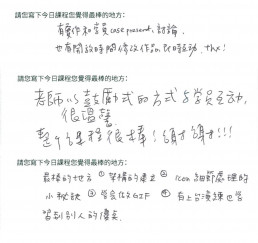 請您寫下今日課程您覺得最棒的地方:
有實作和學員case present、討論,
也有開放時間修改作品、即時互動, thx!
請您寫下今日課程您覺得最棒的地方:
老師以鼓勵式的方式与學員互動,
很溫馨。
整个課程很棒!謝謝!!!
請您寫下今日課程您覺得最棒的地方:
最棒的地方 ①架構的建立 ② icon 細節處理的
小秘訣 ③學会做GIF ④有上台演練也可
習到別人的優點。